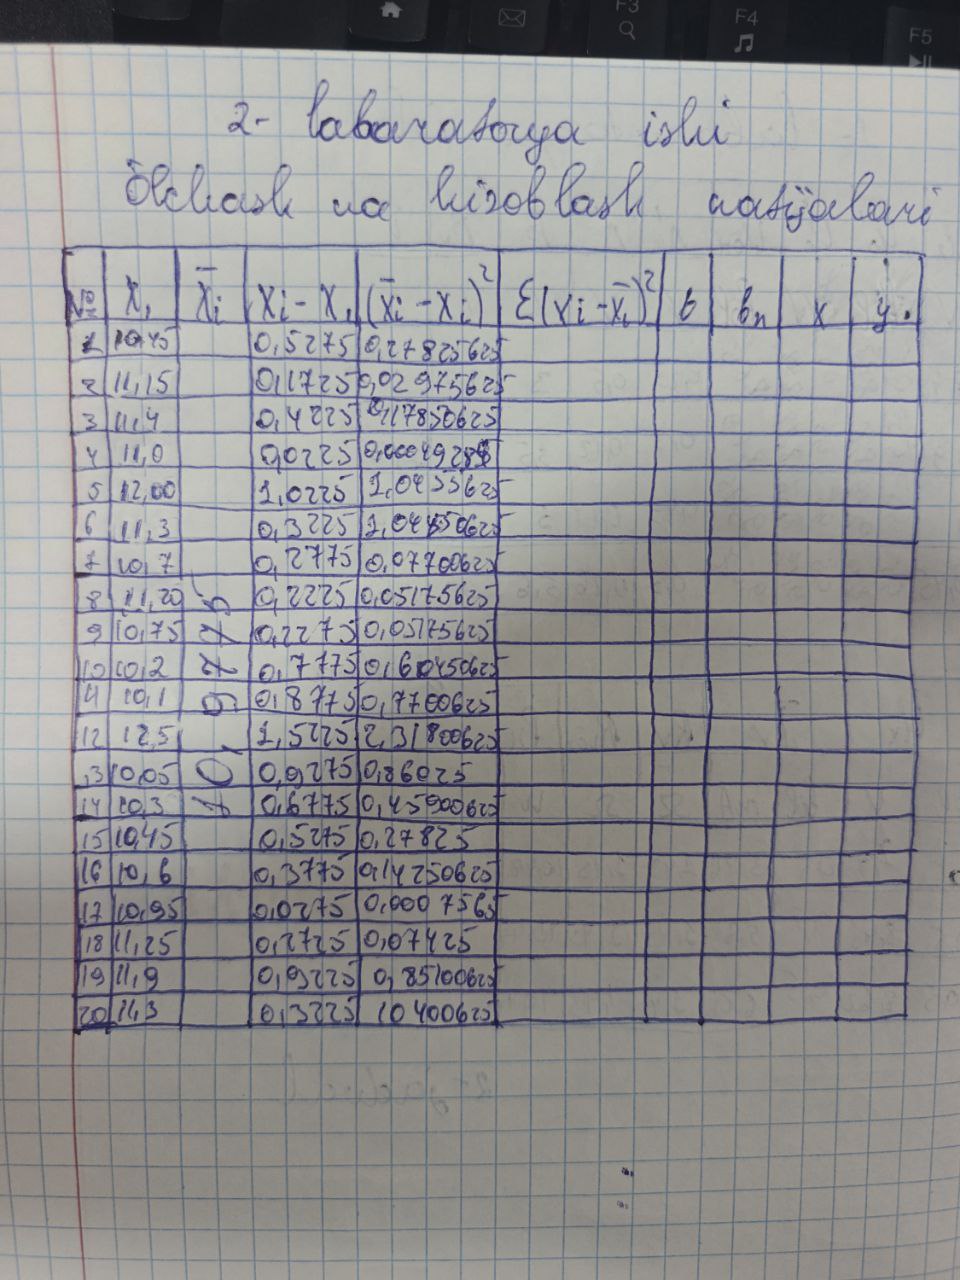 F3
F4
F5
2- labaratorya ishi
ölchash va hisoblash natijalari
№ X₁ X̄i Xi - X₁ (X̄i - Xi)² Σ(Xi - X̄i)² б бn x y.
1 10,45 0,5275 0,27825625
2 11,15 0,1725 0,02975625
3 11,4 0,4225 0,17850625
4 11,0 0,0225
5 12,00 1,0225 1,0455625
6 11,3 0,3225 1,04450625
7 10,7 0,2775 0,07700625
8 11,20 0,2225 0,05175625
9 10,75 0,2275 0,05175625
10 10,2 0,7775 0,60450625
11 10,1 0,8775 0,7700625
12 12,5 1,5225 2,31800625
13 10,05 0,9275 0,86025
14 10,3 0,6775 0,45900625
15 10,45 0,5275 0,27825
16 10,6 0,3775 0,14250625
17 10,95 0,0275 0,0007565
18 11,25 0,2725 0,07425
19 11,9 0,9225 0,85100625
20 11,3 0,3225 10400625
10,9775